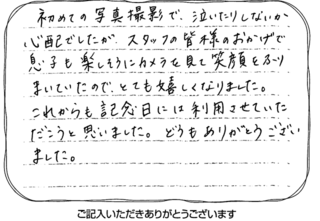 初めての写真撮影で、泣いたりしないか
心配でしたが、スタッフの皆様のおかげで
息子も楽しそうにカメラを見て笑顔をふり
まいていたので、とても嬉しくなりました。
これからも記念日には利用させていた
だこうと思いました。どうもありがとうござい
ました。
ご記入いただきありがとうございます